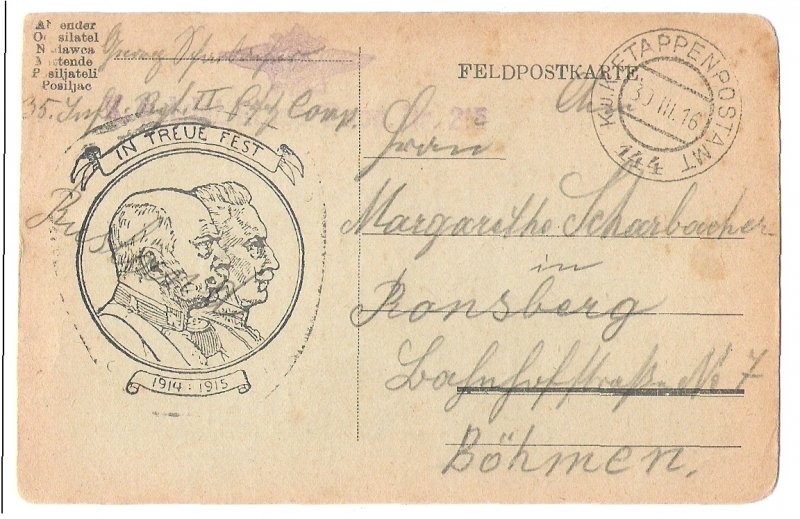 Absender
Odesilatel
Nadawca
Mittente
Posiljateli
Posiljac
Georg Scharbacher
35. Inft. Rgt. II Comp.
FELDPOSTKARTE
K.u.K. ETAPPENPOSTAMT
30 III. 16
144
IN TREUE FEST
1914 : 1915
An
Frau
Margarethe Scharbacher
in
Ronsberg
Bahnhofstraße No 7
Böhmen.